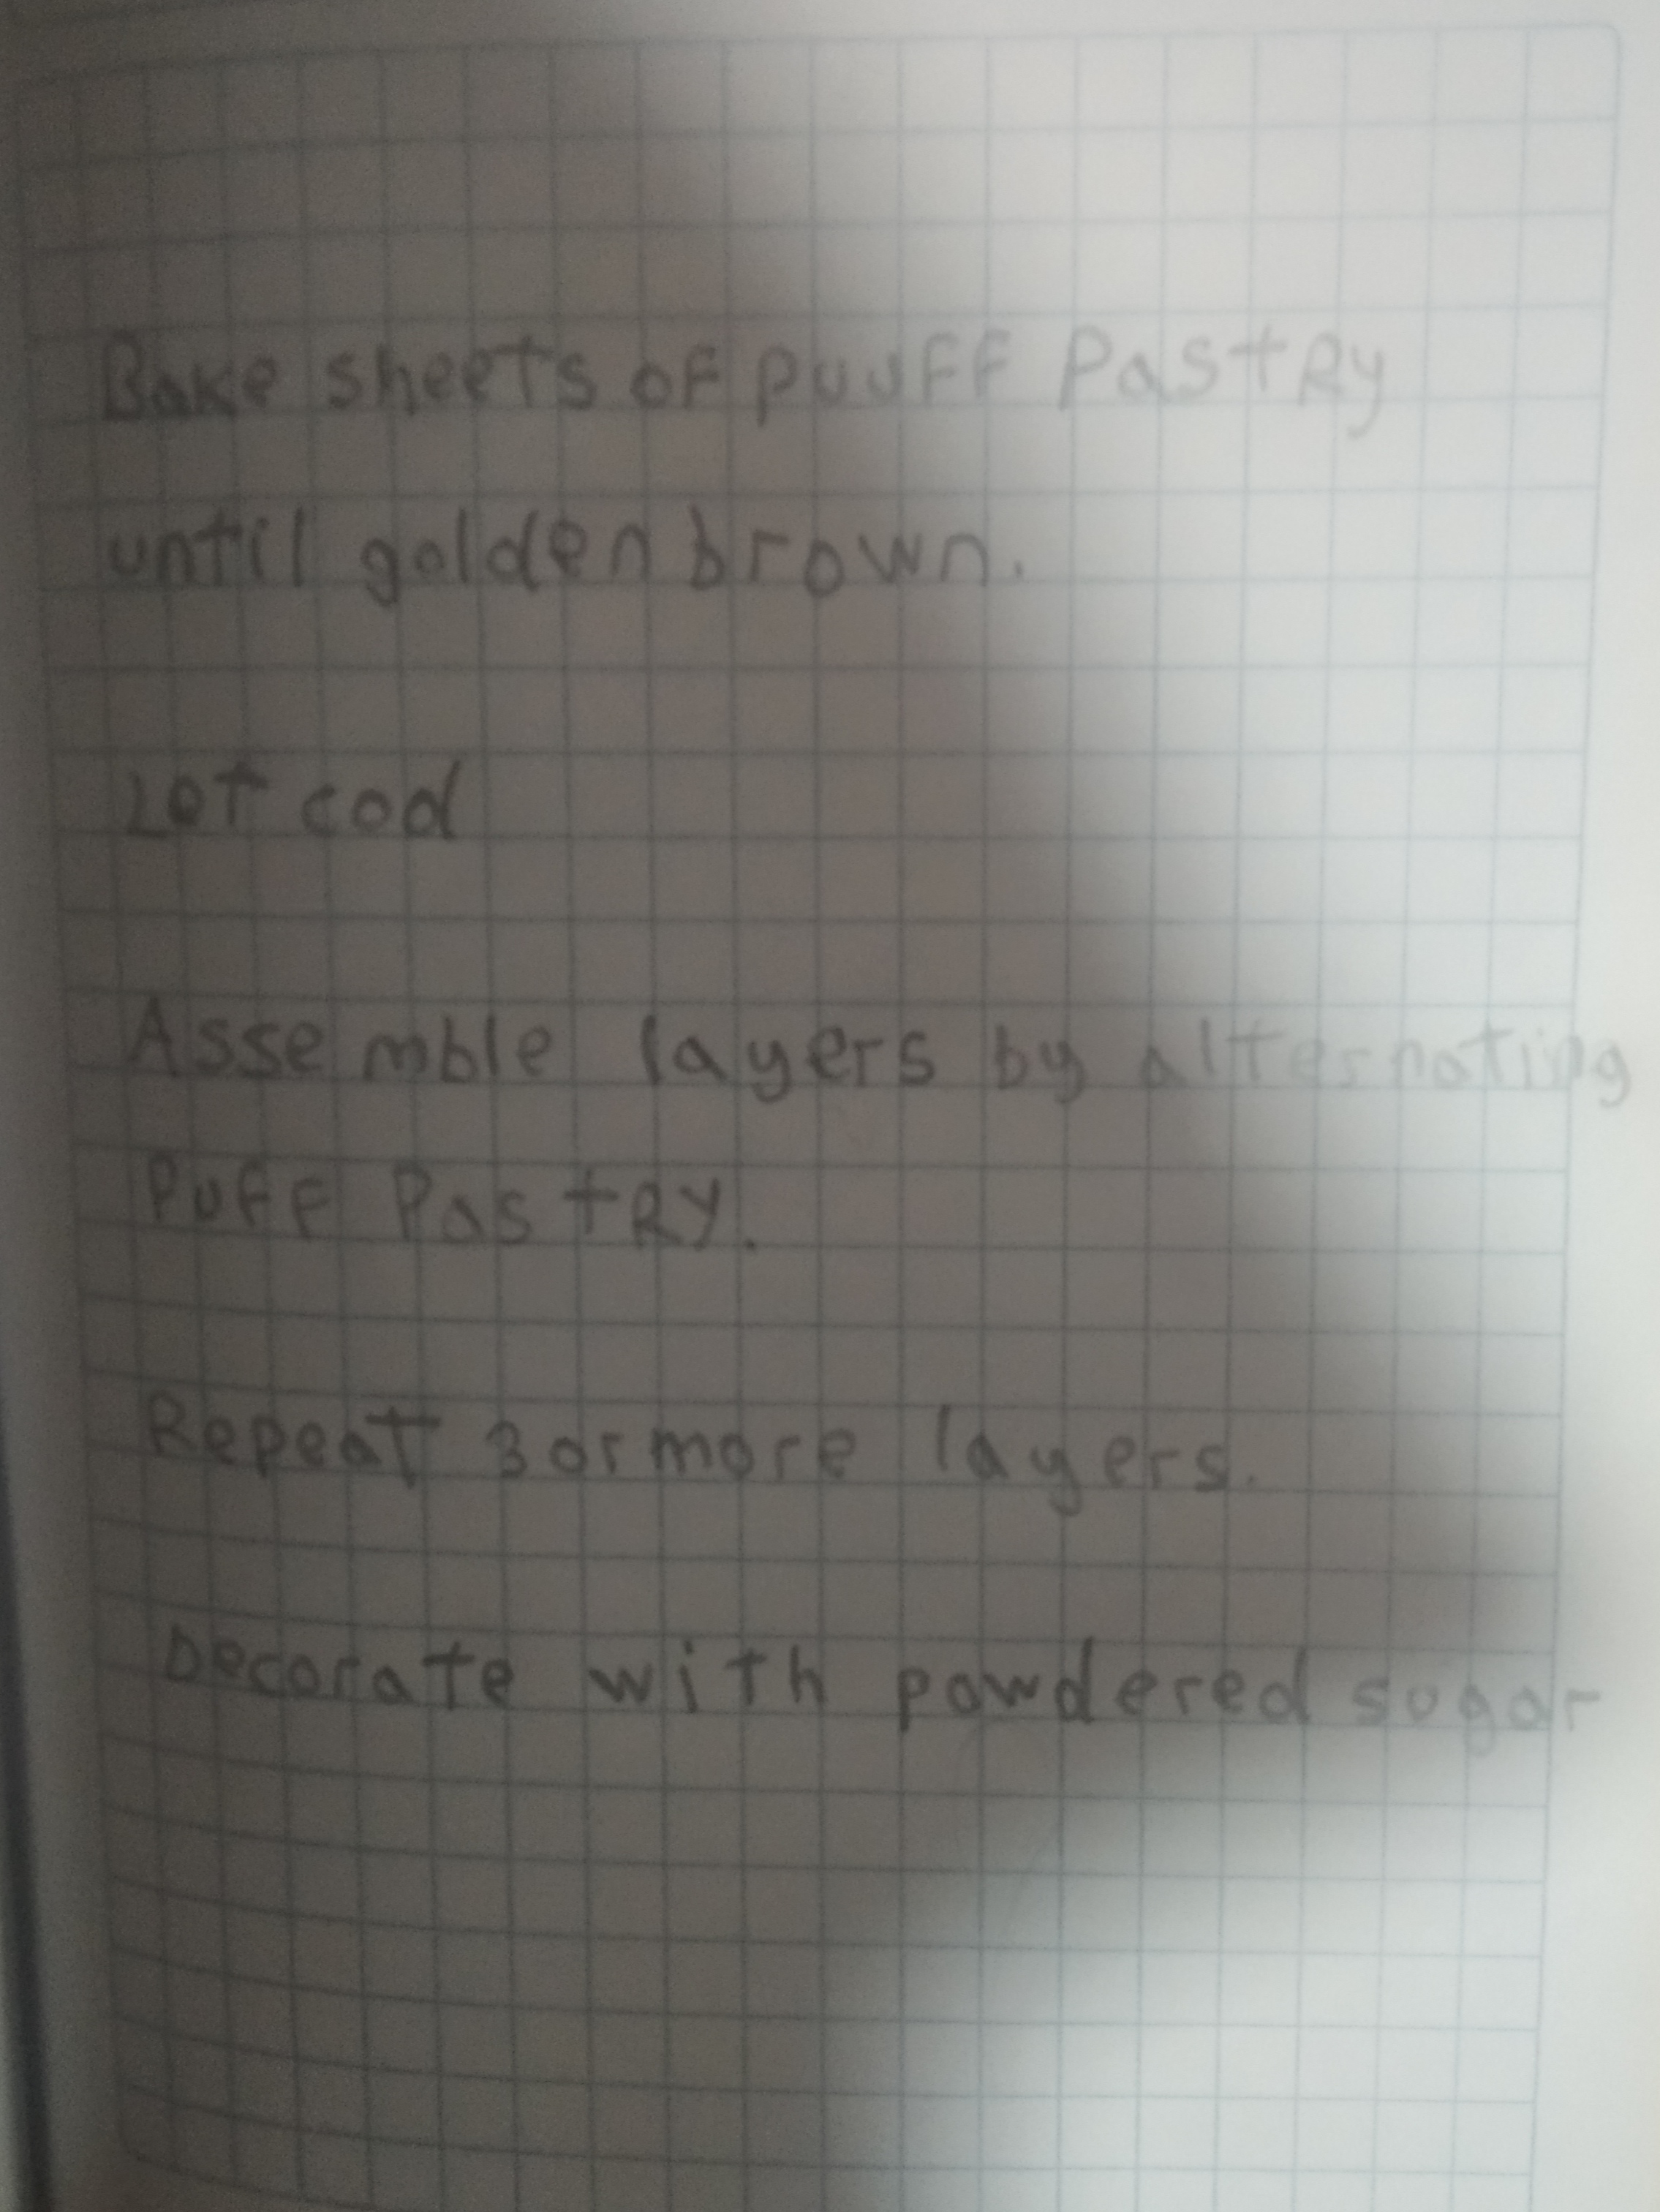 Bake sheets of puuff Pastry
until golden brown.
Let cool
Assemble layers by alternating
Puff Pastry.
Repeat 3 or more layers.
Decorate with powdered sugar